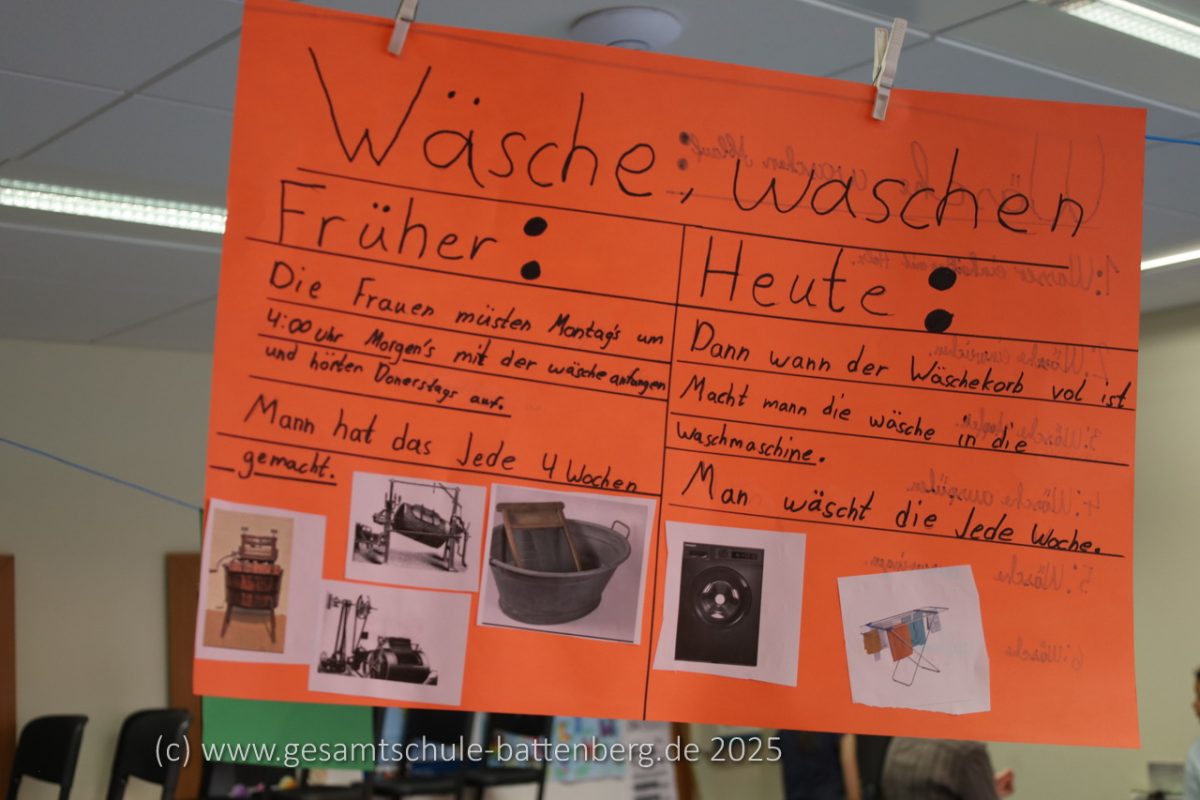 Wäsche, waschen
Früher:
Die Frauen müsten Montag's um
4:00 Uhr Morgen's mit der wäsche anfangen
und hörten Donerstags auf.
Mann hat das Jede 4 Wochen
gemacht.
Heute:
Dann wann der Wäschekorb vol ist
Macht mann die wäsche in die
Waschmaschine.
Man wäscht die Jede Woche.
(c) www.gesamtschule-battenberg.de 2025